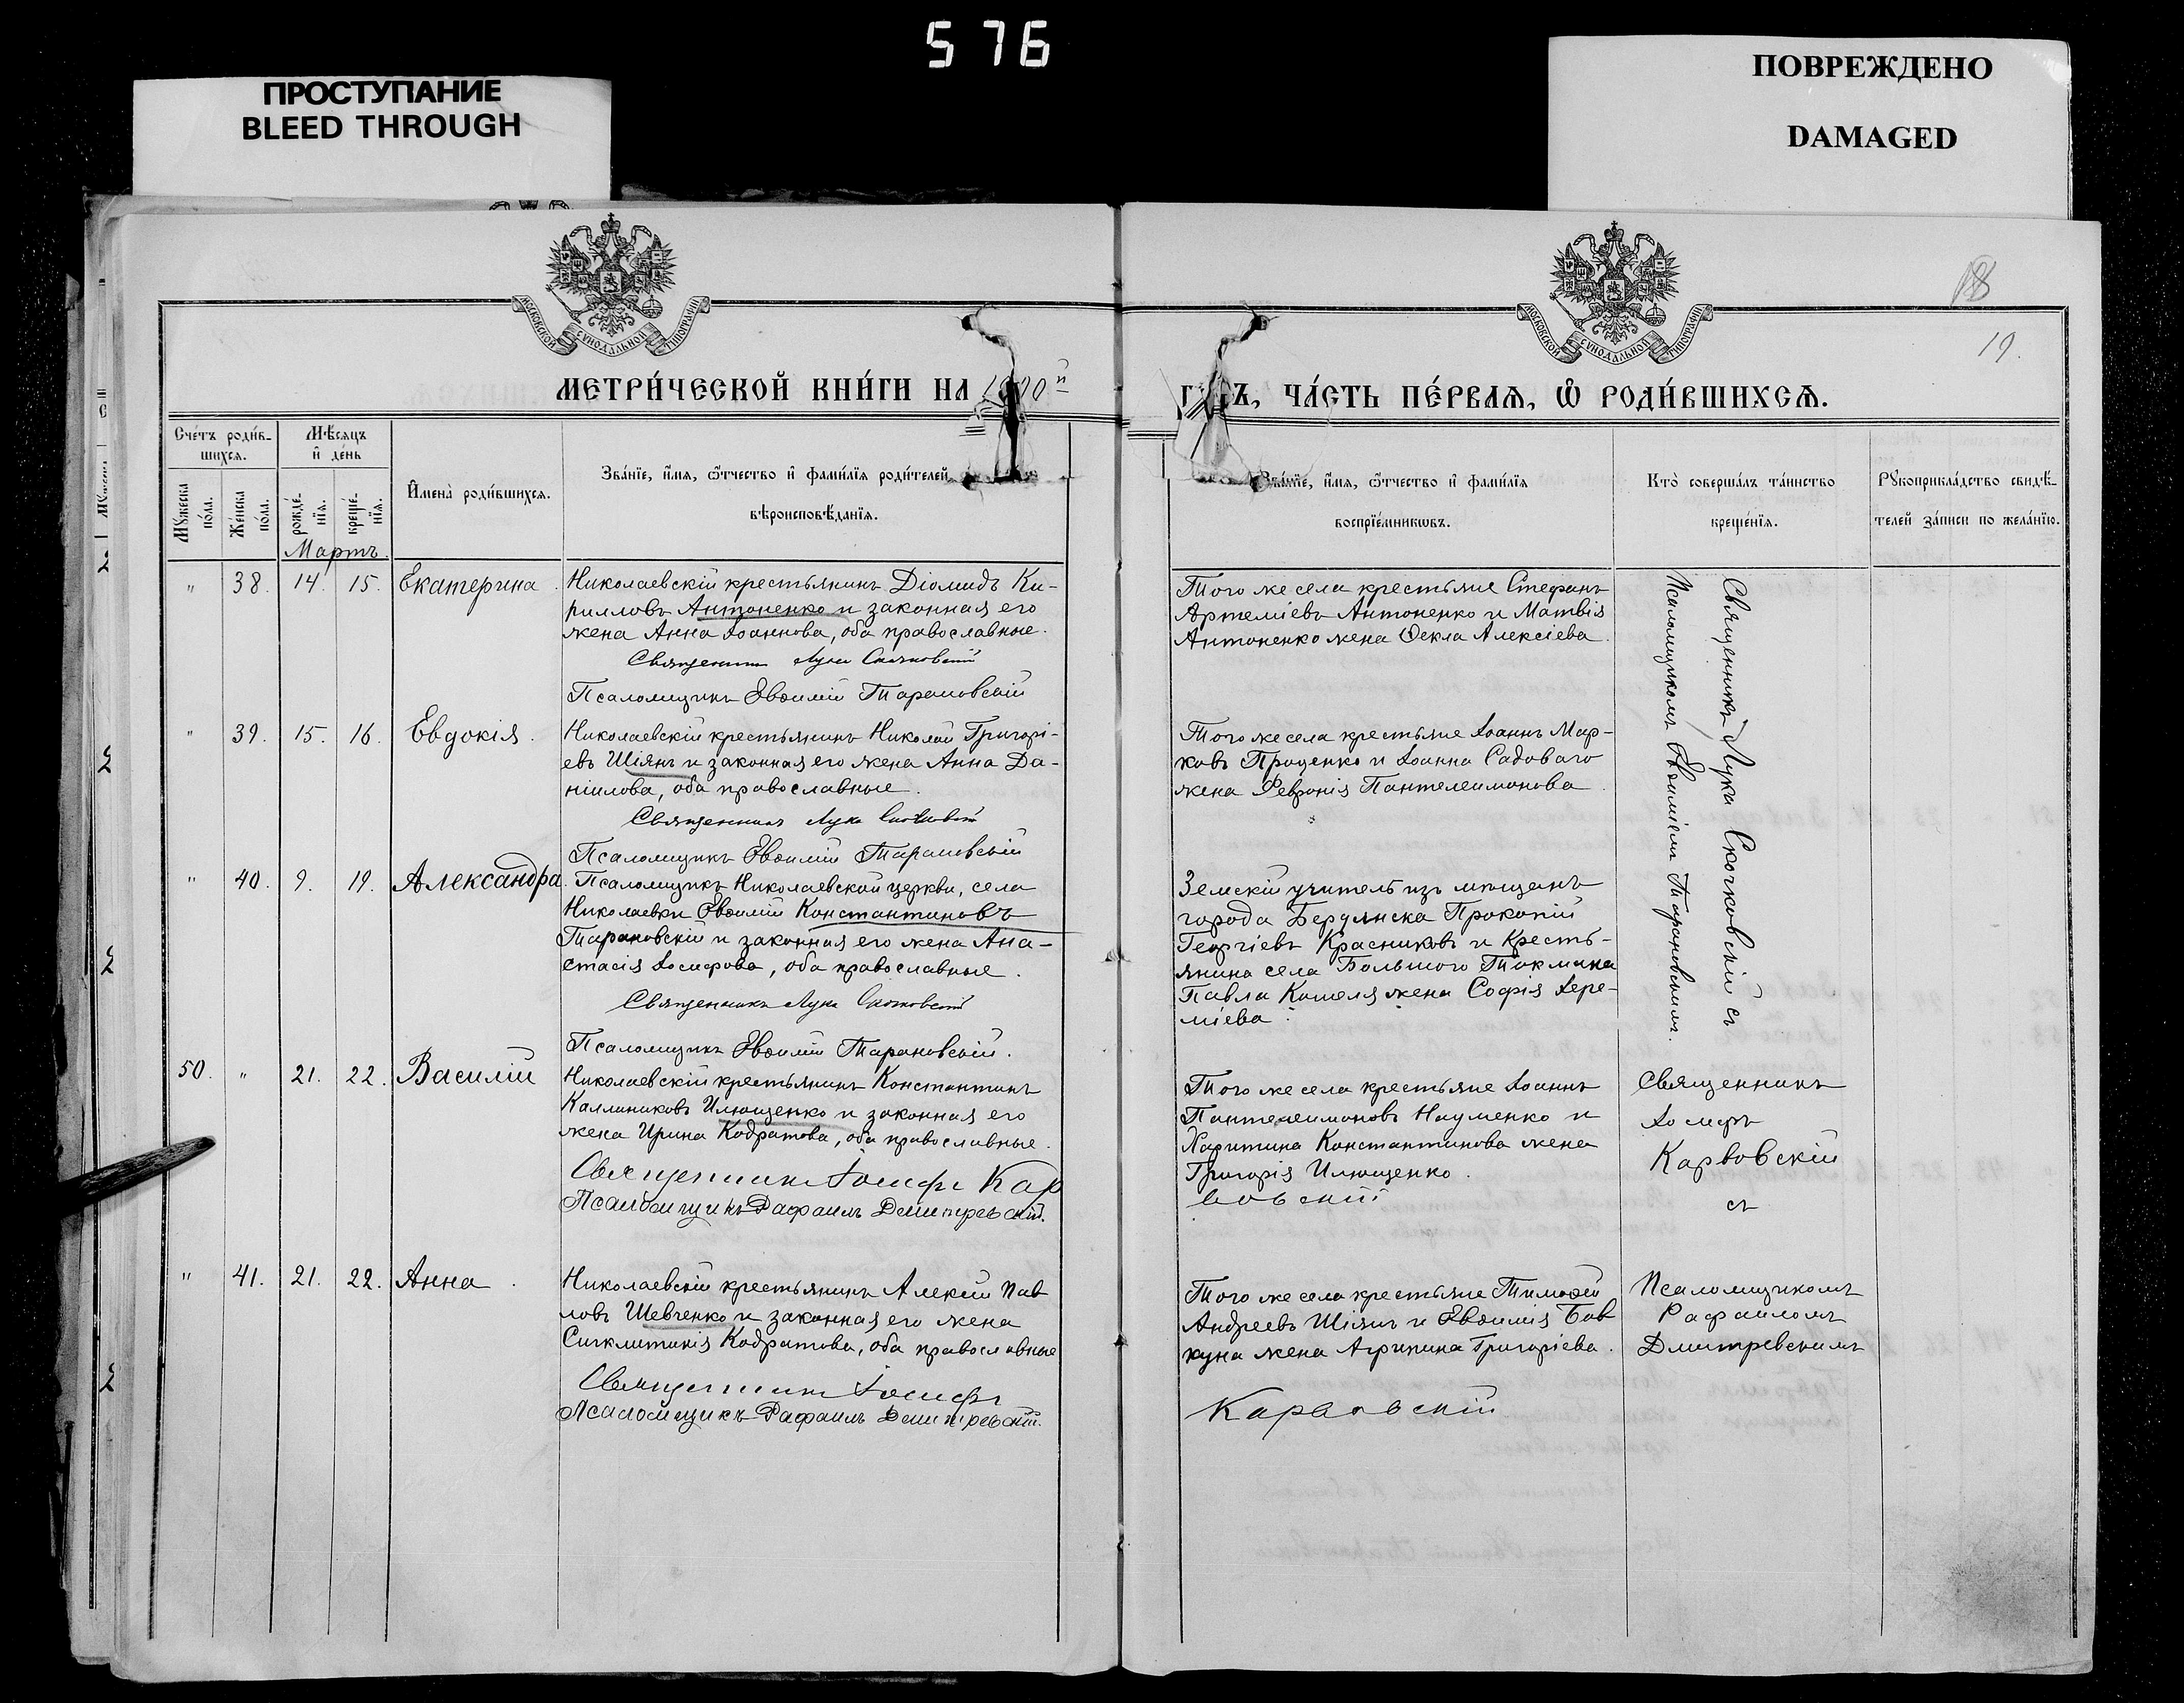 576
ПРОСТУПАНИЕ
BLEED THROUGH
ПОВРЕЖДЕНО
DAMAGED
МОСКОВСКОЙ СѴНОДАЛЬНОЙ ТИПОГРАФІИ
МОСКОВСКОЙ СѴНОДАЛЬНОЙ ТИПОГРАФІИ
18
19.
МЕТРИ́ЧЕСКОЙ КНИ́ГИ НА 1900й
ГОДЪ, ЧА́СТЬ ПЕ́РВАѦ, Ѡ҆ РОДИ́ВШИХСѦ.
Сче́тъ роди́в-
шихсѧ.
Мѣ́сѧцъ
и҆ де́нь
И҆мена̀ роди́вшихсѧ.
Зва́нїе, и҆́мѧ, ѻ҆́тчество и҆ фамн́лїѧ роди́телей,
вѣроисповѣ́данїѧ.
Мꙋ́жеска по́ла.
Же́нска по́ла.
рожде́нїѧ.
креще́нїѧ.
Мартъ.
Зва́нїе, и҆́мѧ, ѻ҆́тчество и҆ фами́лїѧ
воспрїе́мникѡвъ.
Кто̀ соверша́лъ та́инство
креще́нїѧ.
Рꙋкоприкла́дство свидѣ́-
телей за́писи по жела́нїю.
" 38. 14. 15. Екатерина
Николаевскій крестьянинъ Діомидъ Ки-
рилловъ Антоненко и законная его
жена Анна Іоаннова, оба православные.
Священникъ Лука Скочковскій
Псаломщикъ Евѳимій Тарановскій
Того же села крестьяне Стефанъ
Артеміевъ Антоненко и Матвія
Антоненко жена Ѳекла Алексіева.
Священникъ Лука Скочковскій съ
Псаломщикомъ Евѳиміемъ Тарановскимъ.
" 39. 15. 16. Евдокія.
Николаевскій крестьянинъ Николай Григорі-
евъ Шіянъ и законная его жена Анна Да-
ніилова, оба православные.
Священникъ Лука Скочковскій
Псаломщикъ Евѳимій Тарановскій
Того же села крестьяне Іоаннъ Мар-
ковъ Проценко и Іоанна Садоваго
жена Февронія Пантелеимонова.
" 40. 9. 19. Александра.
Псаломщикъ Николаевской церкви, села
Николаевки Евѳимій Константиновъ
Тарановскій и законная его жена Ана-
стасія Іосифова, оба православные.
Священникъ Лука Скочковскій
Псаломщикъ Евѳимій Тарановскій.
Земскій учитель изъ мѣщанъ
города Бердянска Прокопій
Георгіевъ Красниковъ и Кресть-
янина села Большого Токмака
Павла Кошеля жена Софія Іере-
міева.
50. " 21. 22. Василій
Николаевскій крестьянинъ Константинъ
Каллиниковъ Илющенко и законная его
жена Ирина Кодратова, оба православные.
Священникъ Іосифъ Кар
вовскій
Псаломщикъ Рафаилъ Дмитревскій.
Того же села крестьяне Іоаннъ
Пантелеимоновъ Науменко и
Харитина Константинова жена
Григорія Илющенко.
Священникъ
Іосифъ
Карвовскій
съ
" 41. 21. 22. Анна.
Николаевскій крестьянинъ Алексій Пав
ловъ Шевченко и законная его жена
Сигклитикія Кодратова, оба православные
Священникъ Іосифъ
Карвовскій
Псаломщикъ Рафаилъ Дмитревскій.
Того же села крестьяне Тимофей
Андреевъ Шіянъ и Евѳимія Бов
куна жена Агрипина Григоріева.
Псаломщикомъ
Рафаиломъ
Дмитревскимъ